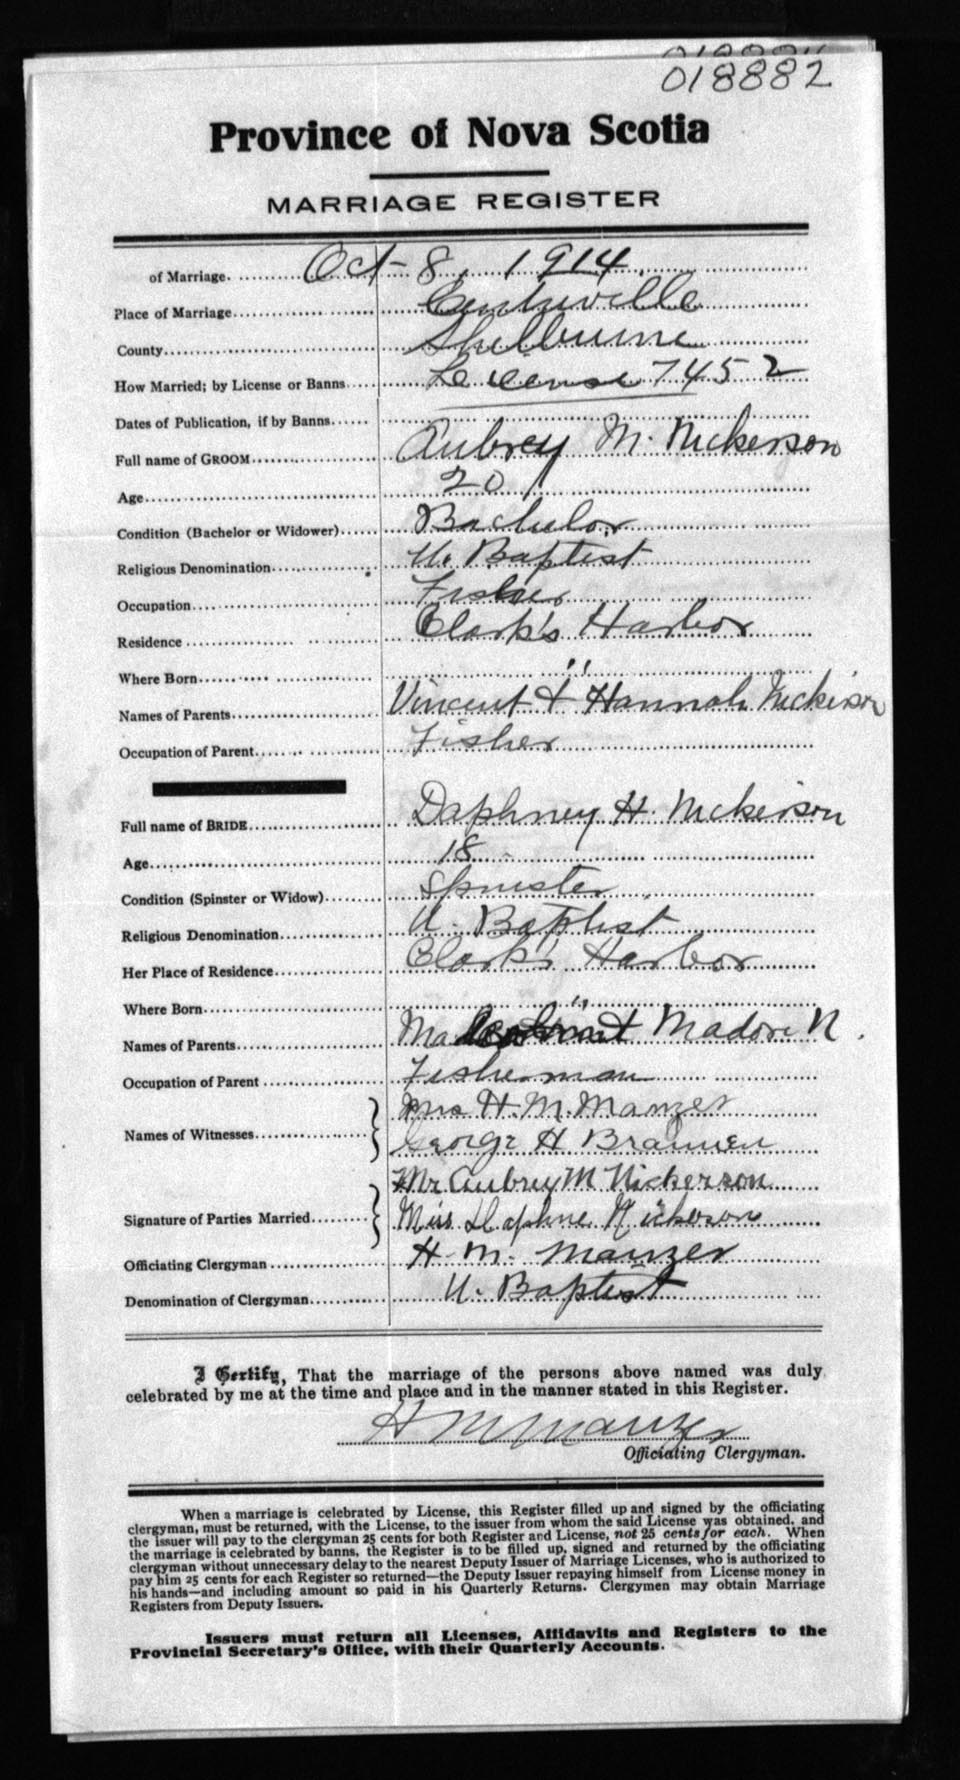 018882
Province of Nova Scotia
MARRIAGE REGISTER
of Marriage. Oct 8, 1914
Place of Marriage Centreville
County Shelburne
How Married; by License or Banns License 7452
Dates of Publication, if by Banns
Full name of GROOM Aubrey M. Nickerson
Age 20
Condition (Bachelor or Widower) Bachelor
Religious Denomination U. Baptist
Occupation Fisher
Residence Clark's Harbor
Where Born " 
Names of Parents Vincent & Hannah Nickerson
Occupation of Parent Fisher
Full name of BRIDE Daphney H. Nickerson
Age 18
Condition (Spinster or Widow) Spinster
Religious Denomination U. Baptist
Her Place of Residence Clark's Harbor
Where Born "
Names of Parents & Madori N.
Occupation of Parent Fisherman
Names of Witnesses Mrs H. M. Manzer
George H Brannen
Mr Aubrey M Nickerson
Signature of Parties Married Miss Daphne Nickerson
Officiating Clergyman H. M. Manzer
Denomination of Clergyman U. Baptist
I Certify, That the marriage of the persons above named was duly
celebrated by me at the time and place and in the manner stated in this Register.
H M Manzer
Officiating Clergyman.
When a marriage is celebrated by License, this Register filled up and signed by the officiating
clergyman, must be returned, with the License, to the issuer from whom the said License was obtained, and
the issuer will pay to the clergyman 25 cents for both Register and License, not 25 cents for each. When
the marriage is celebrated by banns, the Register is to be filled up, signed and returned by the officiating
clergyman without unnecessary delay to the nearest Deputy Issuer of Marriage Licenses, who is authorized to
pay him 25 cents for each Register so returned—the Deputy Issuer repaying himself from License money in
his hands—and including amount so paid in his Quarterly Returns. Clergymen may obtain Marriage
Registers from Deputy Issuers.
Issuers must return all Licenses, Affidavits and Registers to the
Provincial Secretary's Office, with their Quarterly Accounts.